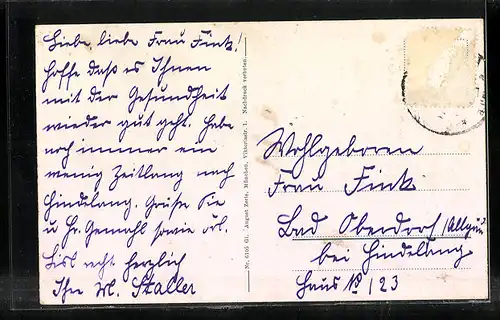 Liebe, liebe Frau Fink!
Hoffe daß es Ihnen
mit der Gesundheit
wieder gut geht. Habe
noch immer ein
wenig Zeitlang nach
Hindelang. Grüße Sie
u Hr. Gemahl sowie Frl.
Lisl recht herzlich
Ihr M. Staller
Nr. 6105 Gl. August Zerle, München, Viktoriastr. 1. Nachdruck verboten.
Wohlgeboren
Frau Fink
Bad Oberdorf/Allgäu
bei Hindelang
Haus No 123